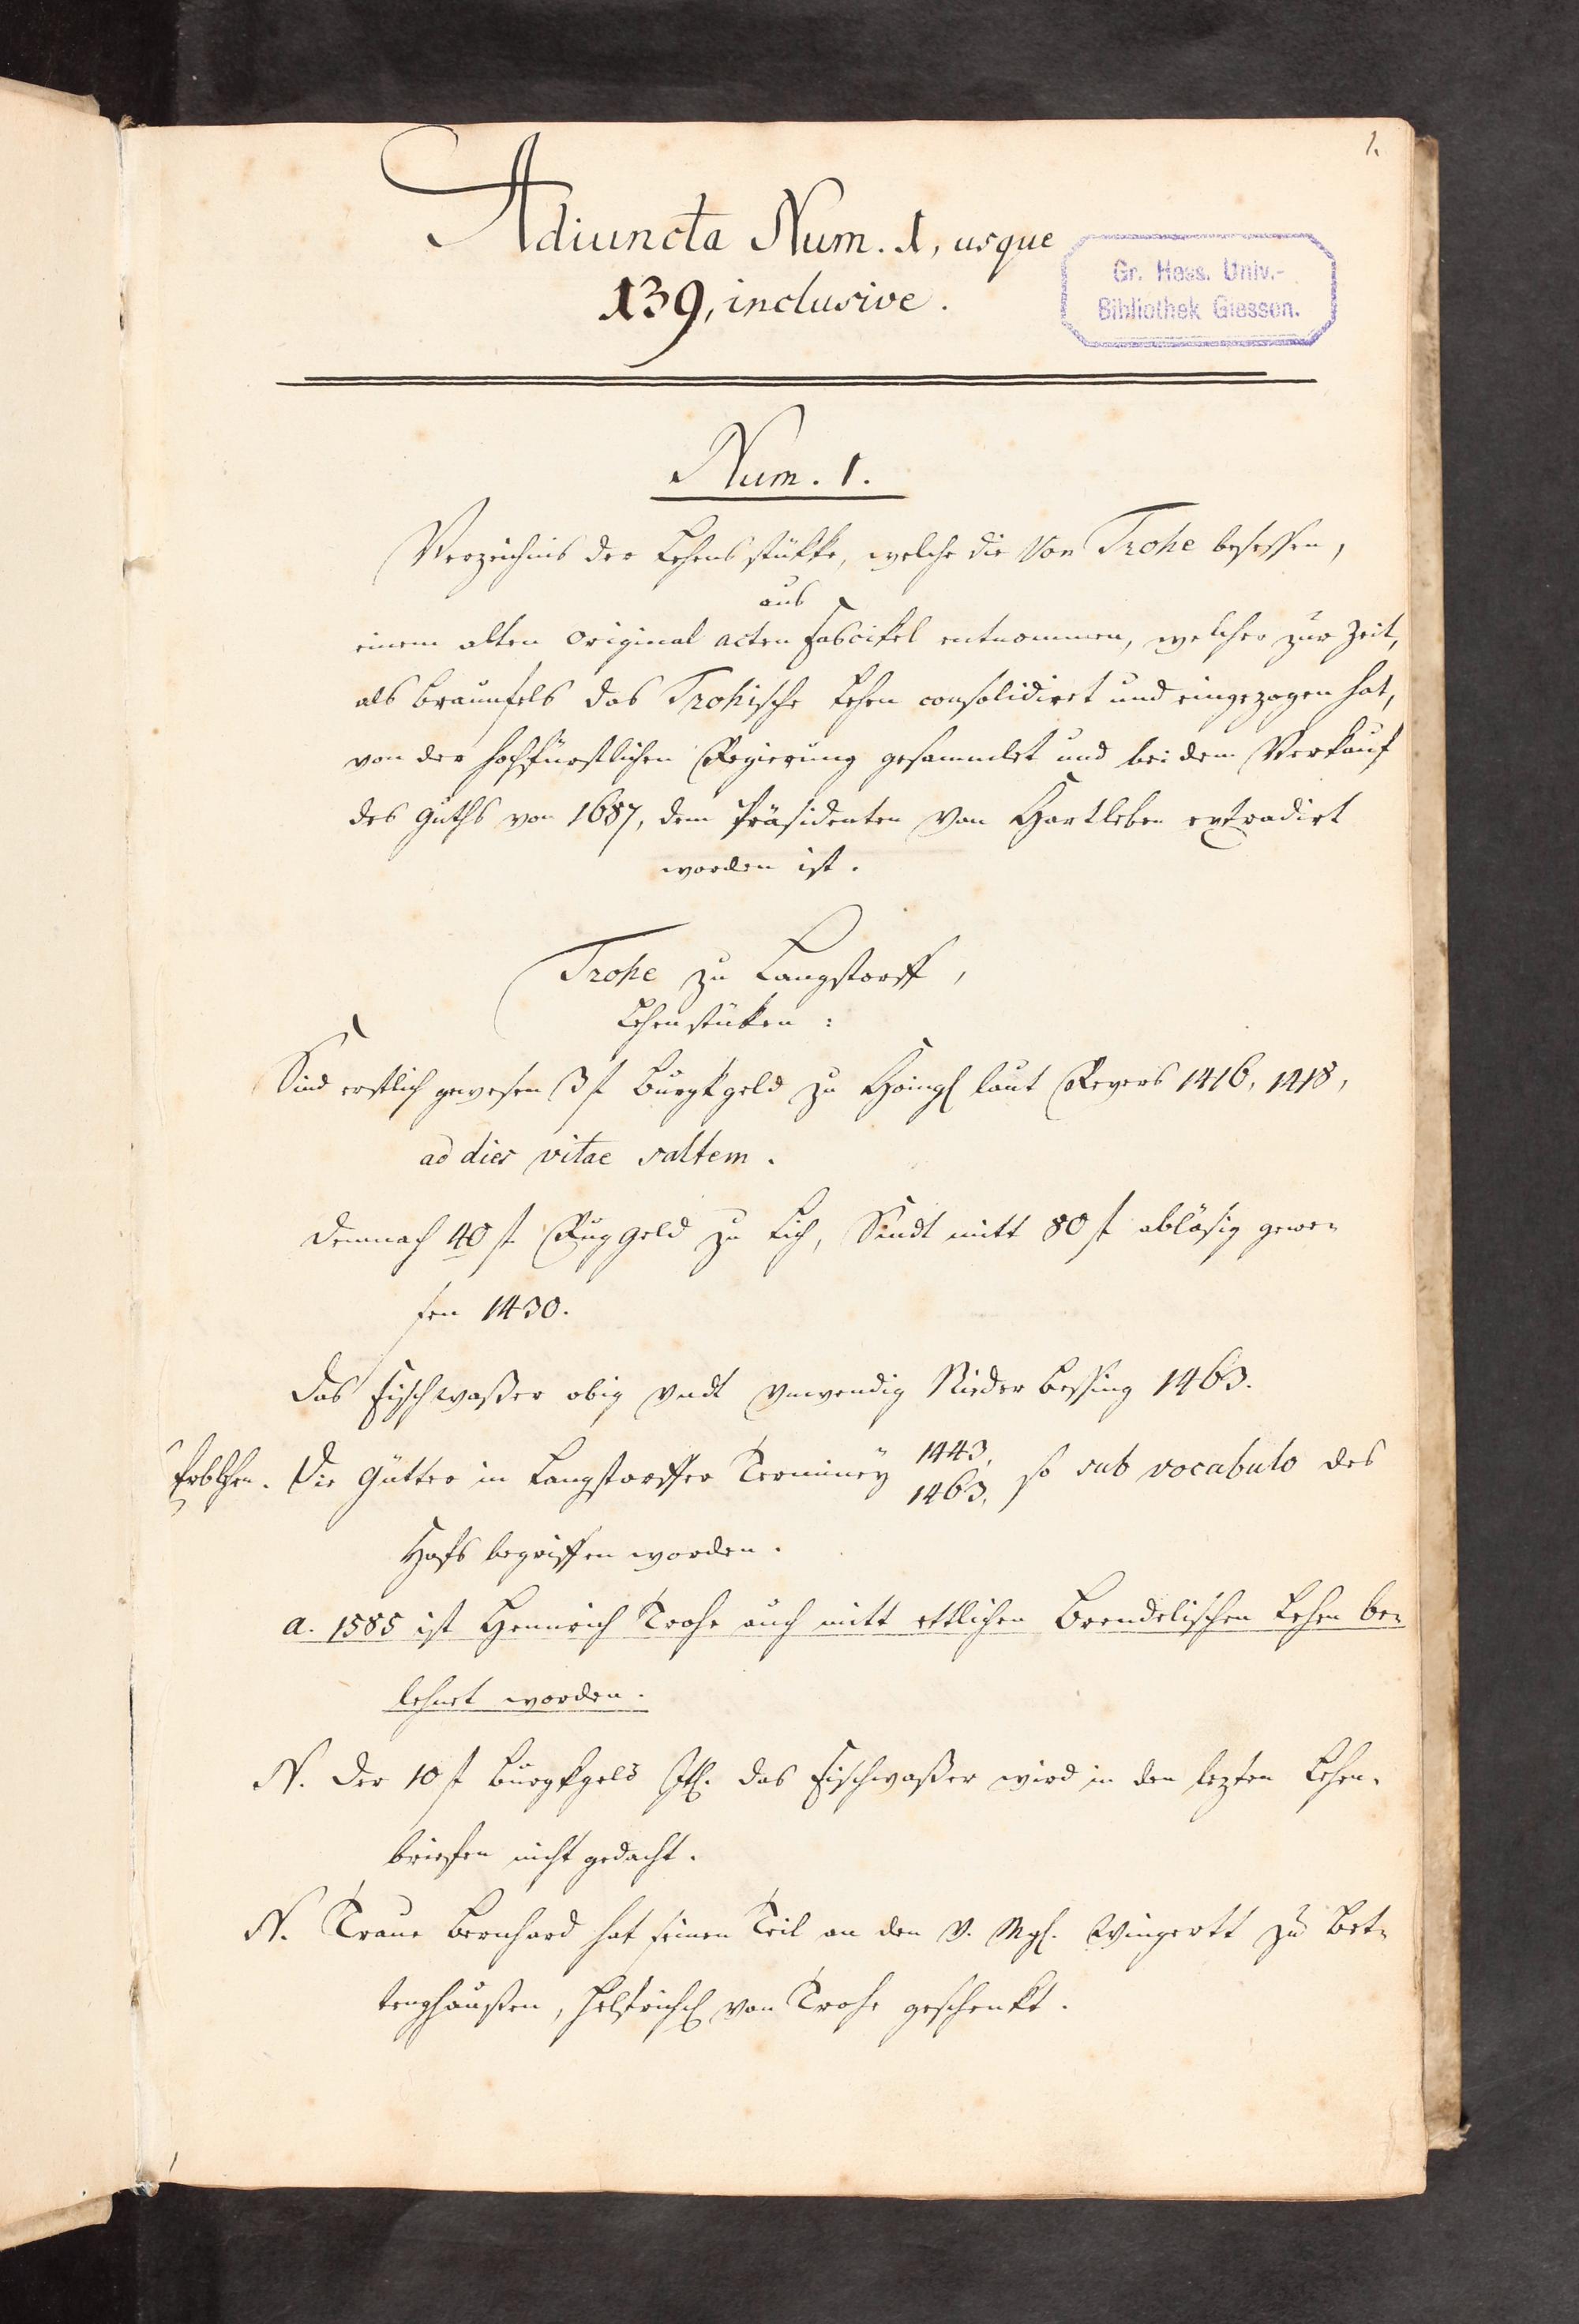 1.
Adiuncta Num. 1, usque
139, inclusive.
Gr. Hess. Univ.-
Bibliothek Giessen.
Num. 1.
Verzeichnis der Lehens stükke, welche die Von Trohe besessen,
aus
einem alten Original acten Fascikel entnommen, welcher zur Zeit,
als Braunfels das Trohische Lehen consolidirt und eingezogen hat,
von der hochfürstlichen Regierung gesammelt und bei dem Verkauf
des Guths von 1687, dem Präsidenten von Hartleben extradirt
worden ist.
Trohe zu Langstorff,
Lehenstüken:
Sind erstlich gewesen 3 fl Burgkgeld zu Hoingen laut Revers 1416, 1418,
ad dies vitae saltem.
demnach 40 fl Ruggeld zu Lich, Sindt mitt 80 fl ablösig gewe-
sen 1430.
Das Fischwaßer obig vndt vnwendig Nieder Bessing 1463.
Erblehen. Die Gütter in Langstorffer Terminey 1443, 1463, so sub vocabulo des
Hofs begriffen worden.
a. 1585 ist Henrich Trohe auch mitt ettlichen Brendelischen Lehen be-
lehnet worden.
N. Der 10 fl Burgkgeld Itē. das Fischwaßer wird in den lezten Lehen-
briefen nicht gedacht.
N. Traue Bernhard hat seinen Teil an den V. Mgh. Wingertt zu Bet-
tenghaußen, Helfrichen von Trohe geschenkt.